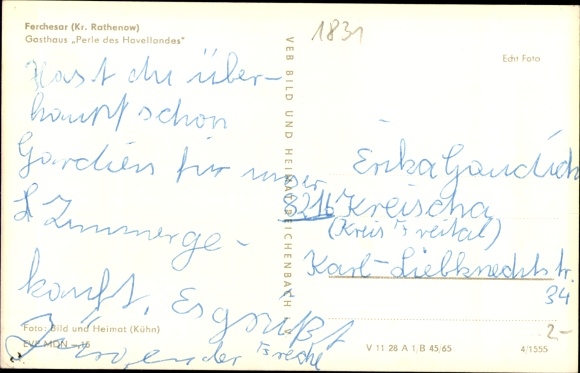 Ferchesar (Kr. Rathenow)
Gasthaus „Perle des Havellandes"
1831
Echt Foto
Hast du über-
haupt schon
Gardien für unser
Zimmerge-
kauft. Es grüßt
Jürgen der Freche
VEB BILD UND HEIMAT REICHENBACH
Erika Gaudich
8216 Kreischa
(Kreis Freital)
Karl-Liebknechtstr.
34
2-
Foto: Bild und Heimat (Kühn)
EVP MDN -,16
V 11 28 A 1/B 45/65
4/1555